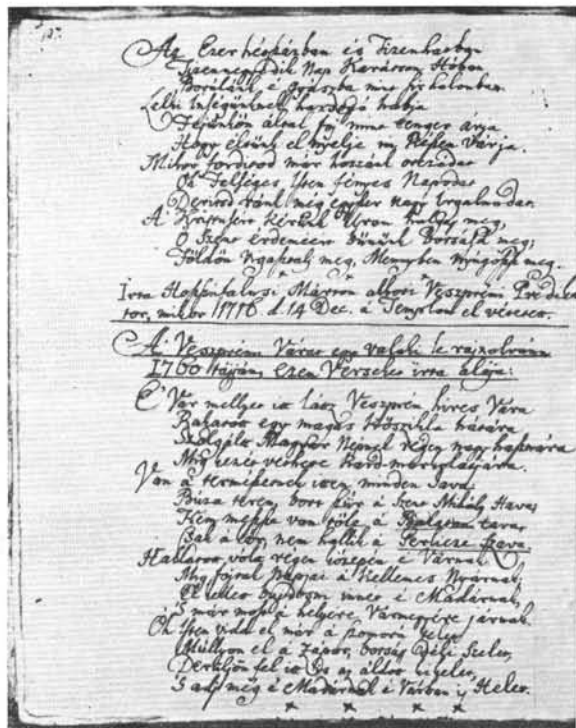 127.
Az Ezer hétszázban és Tizenhatban
Tizennegyedik Nap Karácson Hóban
Borulánk é gyászba
Lelki inségünknek habja
Fejünkön által foly mint tenger arja
Hogy elsünk el nyelje Várja.
Mikor forditod már hozzánk orczádat
Oh Felséges Isten fényes Napodat
Deritsd ránk még egyszer nagy irgalmadat.
A Krisztusért kérünk Uram halgass meg,
O Szent érdeméért bününk botsásd meg;
Földön vigasztalj meg, Mennyben nyugoszd meg.
Irta Hospitalusi Márton akkori Veszprémi Prédiká
tor, mikor 1716 d. 14 Dec. a Templom el vétetett.
A Veszprémi Várat egy valaki le rajzolván
1760 táján, ezen Verseket irta alája:
E' Vár mellyet itt látsz Veszprém hires Vára
Rakatott egy magas Kőszikla hátára
Szolgált Magyar Népnek régen nagy hasznára
Míg
Van a természetnek itten minden Java,
Búza terem, bort szűr a Szent Mihály Hava,
Nem messze van tőle a Balaton tava,
Bak a tér, nem hallik a szava.
Hallatott volt régen közepin é Várnak
Míg Napjai a Kellemes Nyárnak,
El kellett bujdosni innét é Madárnak,
S már most a helyére Vármegyére járnak.
Oh Isten vidd el már a szomorú telet,
Múllyon el a zápor, borság déli Szelet,
Derüljön fel itt is az áldott
S adj még é Madárnak é Várban is Helet.